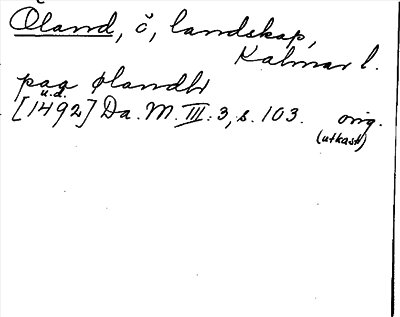 Öland, ö, landskap,
Kalmar l.
paa ølandh
u.d.
[1492] Da. M. III: 3, s. 103. orig.
(utkast)